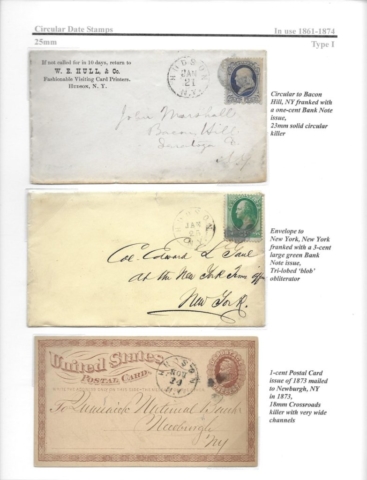 Circular Date Stamps
In use 1861-1874
25mm
Type I
If not called for in 10 days, return to
W. E. HULL, & Co.
Fashionable Visiting Card Printers.
HUDSON, N. Y.
HUDSON
JAN
21
N.Y.
John Marshall
Bacon Hill
Saratoga Co.
N.Y.
Circular to Bacon
Hill, NY franked with
a one-cent Bank Note
issue,
25mm solid circular
killer
JAN
Col. Edward L. Gaul
At the New York Times Office
New York.
Envelope to
New York, New York
franked with a 3-cent
large green Bank
Note issue,
Tri-lobed 'blob'
obliterator
United States
POSTAL CARD.
NOV
N.Y.
To National Bank
Newburgh
NY
1-cent Postal Card
issue of 1873 mailed
to Newburgh, NY
in 1873,
18mm Crossroads
killer with very wide
channels